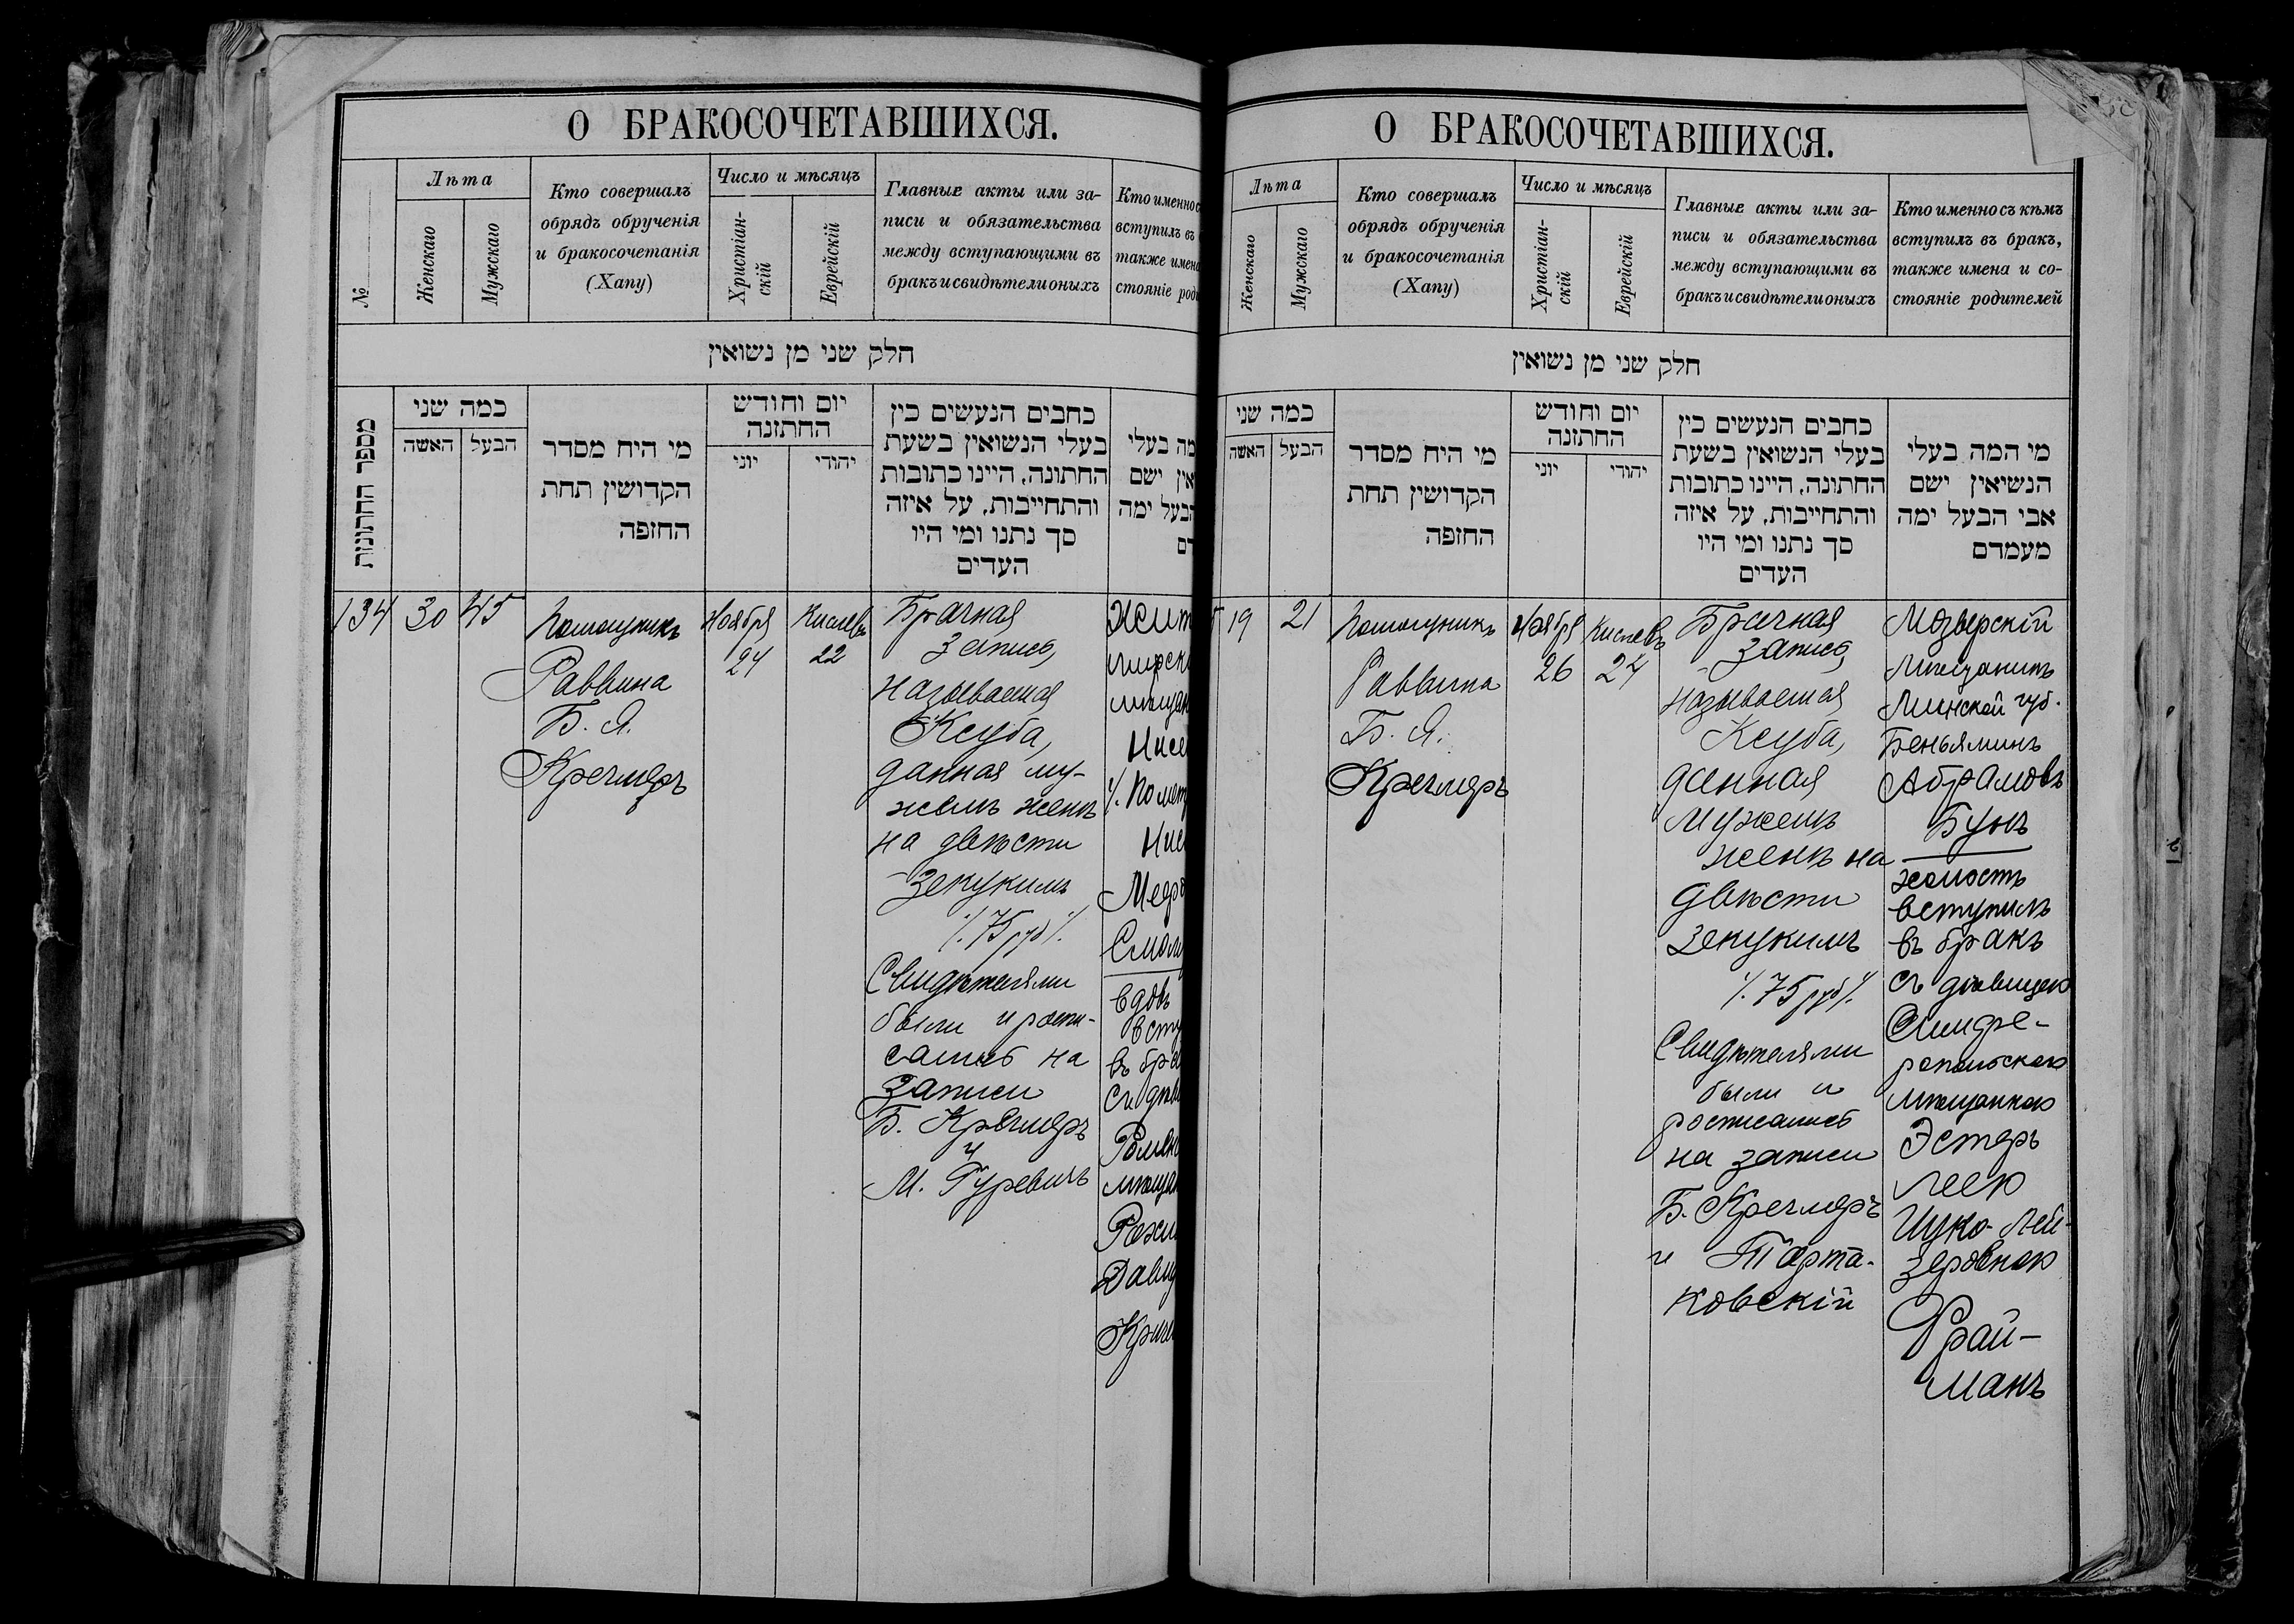 О БРАКОСОЧЕТАВШИХСЯ.
№
Лѣта
Женскаго
Мужскаго
Кто совершалъ
обрядъ обрученія
и бракосочетанія
(Хапу)
Число и мѣсяцъ
Христіан-
скій
Еврейскій
Главные акты или за-
писи и обязательства
между вступающими въ
бракъ и свидѣтели оныхъ
Кто именно с
вступилъ въ
также имена
стояніе роди
חלק שני מן נשואין
מספר החתונות
כמה שני
האשה
הבעל
מי היח מסדר
הקדושין תחת
החזפה
יום וחודש
החתזנה
יוני
יהודי
כחבים הנעשים כין
בעלי הנשואין בשעת
החתונה, היינו כתובות
והתחייבות, על איזה
סך נתנו ומי היו
העדים
מה בעלי
אין ישם
הבעל ימה
דם
134
30
45
Помощникъ
Раввина
Б. Я.
Кречмеръ
Ноября
24
Кислевъ
22
Брачная
запись,
называемая
Ксуба,
данная му-
жемъ женѣ
на двѣсти
зекукимъ
/. 75 руб /.
Свидѣтелями
были и роспи-
сались на
записи
Б. Кречмеръ
и
М. Гуревичъ
Жит
мирск
мѣщан
Нисе
/. по мет
Нис
Медро
Смол
вдов
всту
въ бра
съ дѣв
Ромен
мѣщан
Рохл
Давид
Крич
О БРАКОСОЧЕТАВШИХСЯ.
Лѣта
Женскаго
Мужскаго
Кто совершалъ
обрядъ обрученія
и бракосочетанія
(Хапу)
Число и мѣсяцъ
Христіан-
скій
Еврейскій
Главные акты или за-
писи и обязательства
между вступающими въ
бракъ и свидѣтели оныхъ
Кто именно съ кѣмъ
вступилъ въ бракъ,
также имена и со-
стояніе родителей
חלק שני מן נשואין
כמה שני
האשה
הבעל
מי היח מסדר
הקדושין תחת
החזפה
יום וחודש
החתזנה
יוני
יהודי
כחבים הנעשים כין
בעלי הנשואין בשעת
החתונה, היינו כתובות
והתחייבות, על איזה
סך נתנו ומי היו
העדים
מי המה בעלי
הנשיאין ישם
אבי הבעל ימה
מעמדם
19
21
Помощникъ
Раввина
Б. Я.
Кречмеръ
Ноября
26
Кислевъ
24
Брачная
запись,
называемая
Ксуба,
данная
мужемъ
женѣ на
двѣсти
зекукимъ
/. 75 руб /.
Свидѣтелями
были и
росписались
на записи
Б. Кречмеръ
и Тарта-
ковскій
Мозырскій
мѣщанинъ
Минской губ.
Беньяминъ
Абрамовъ
Бунъ
холостъ
вступилъ
въ бракъ
съ дѣвицею
Симфе-
ропольскою
мѣщанкою
Эстеръ
Леею
Ицко-Лей-
зеровною
Фрай-
манъ